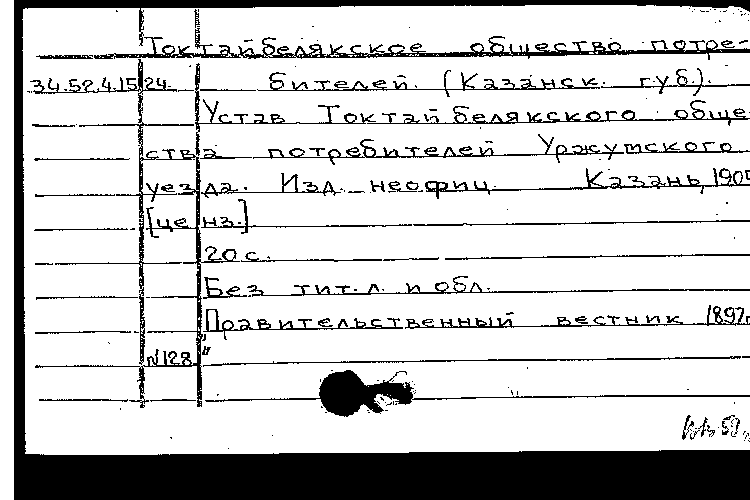 Токтайбелякское общество потре-
34.52.4.15 24. бителей. (Казанск. губ.).
Устав Токтайбелякского обще
ства потребителей Уржумского
уезда. Изд. неофиц. Казань, 190
[ценз.]
20 с.
Без тит. л. и обл.
Правительственный вестник 1897г
№128